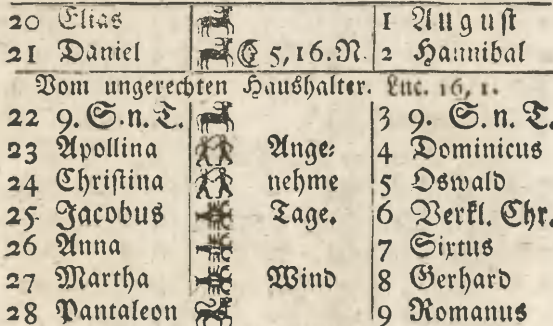 20 Elias 1 August
21 Daniel ☾ 5, 16. N. 2 Hannibal
Vom ungerechten Haushalter. Luc. 16, 1.
22 9. S. n. T. 3 9. S. n. T.
23 Apollina Ange⸗ 4 Dominicus
24 Christina nehme 5 Oswald
25 Jacobus Tage. 6 Verkl. Chr.
26 Anna 7 Sixtus
27 Martha Wind 8 Gerhard
28 Pantaleon 9 Romanus